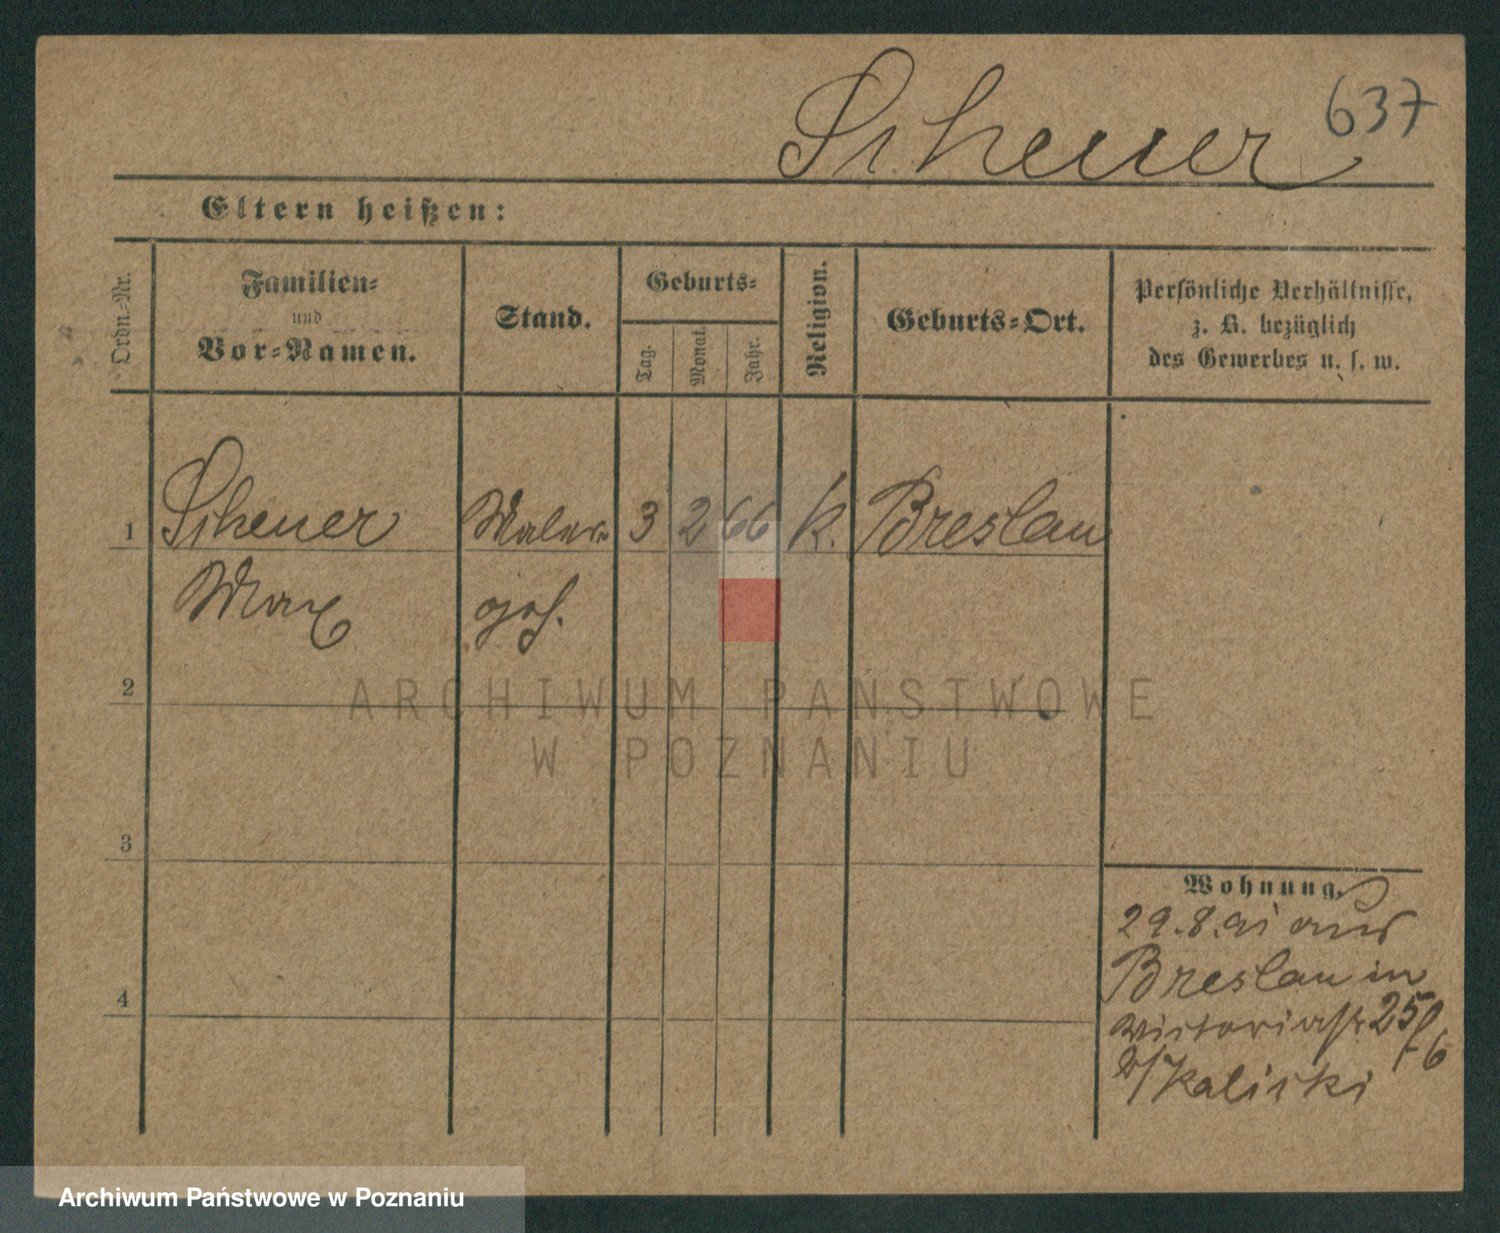 Scheuer 637
Eltern heißen:
Ordn.-Nr.
Familien-
und
Vor-Namen.
Stand.
Geburts-
Tag.
Monat.
Jahr.
Religion.
Geburts-Ort.
Persönliche Verhältnisse,
z. B. bezüglich
des Gewerbes u. s. w.
1 Scheuer Maler 3 2 66 k. Breslau
Max
2
3
4
Wohnung.
29.8.91 aus
Breslau in
Victoriastr 25
b/Kaliski
ARCHIWUM PAŃSTWOWE
W POZNANIU
Archiwum Państwowe w Poznaniu